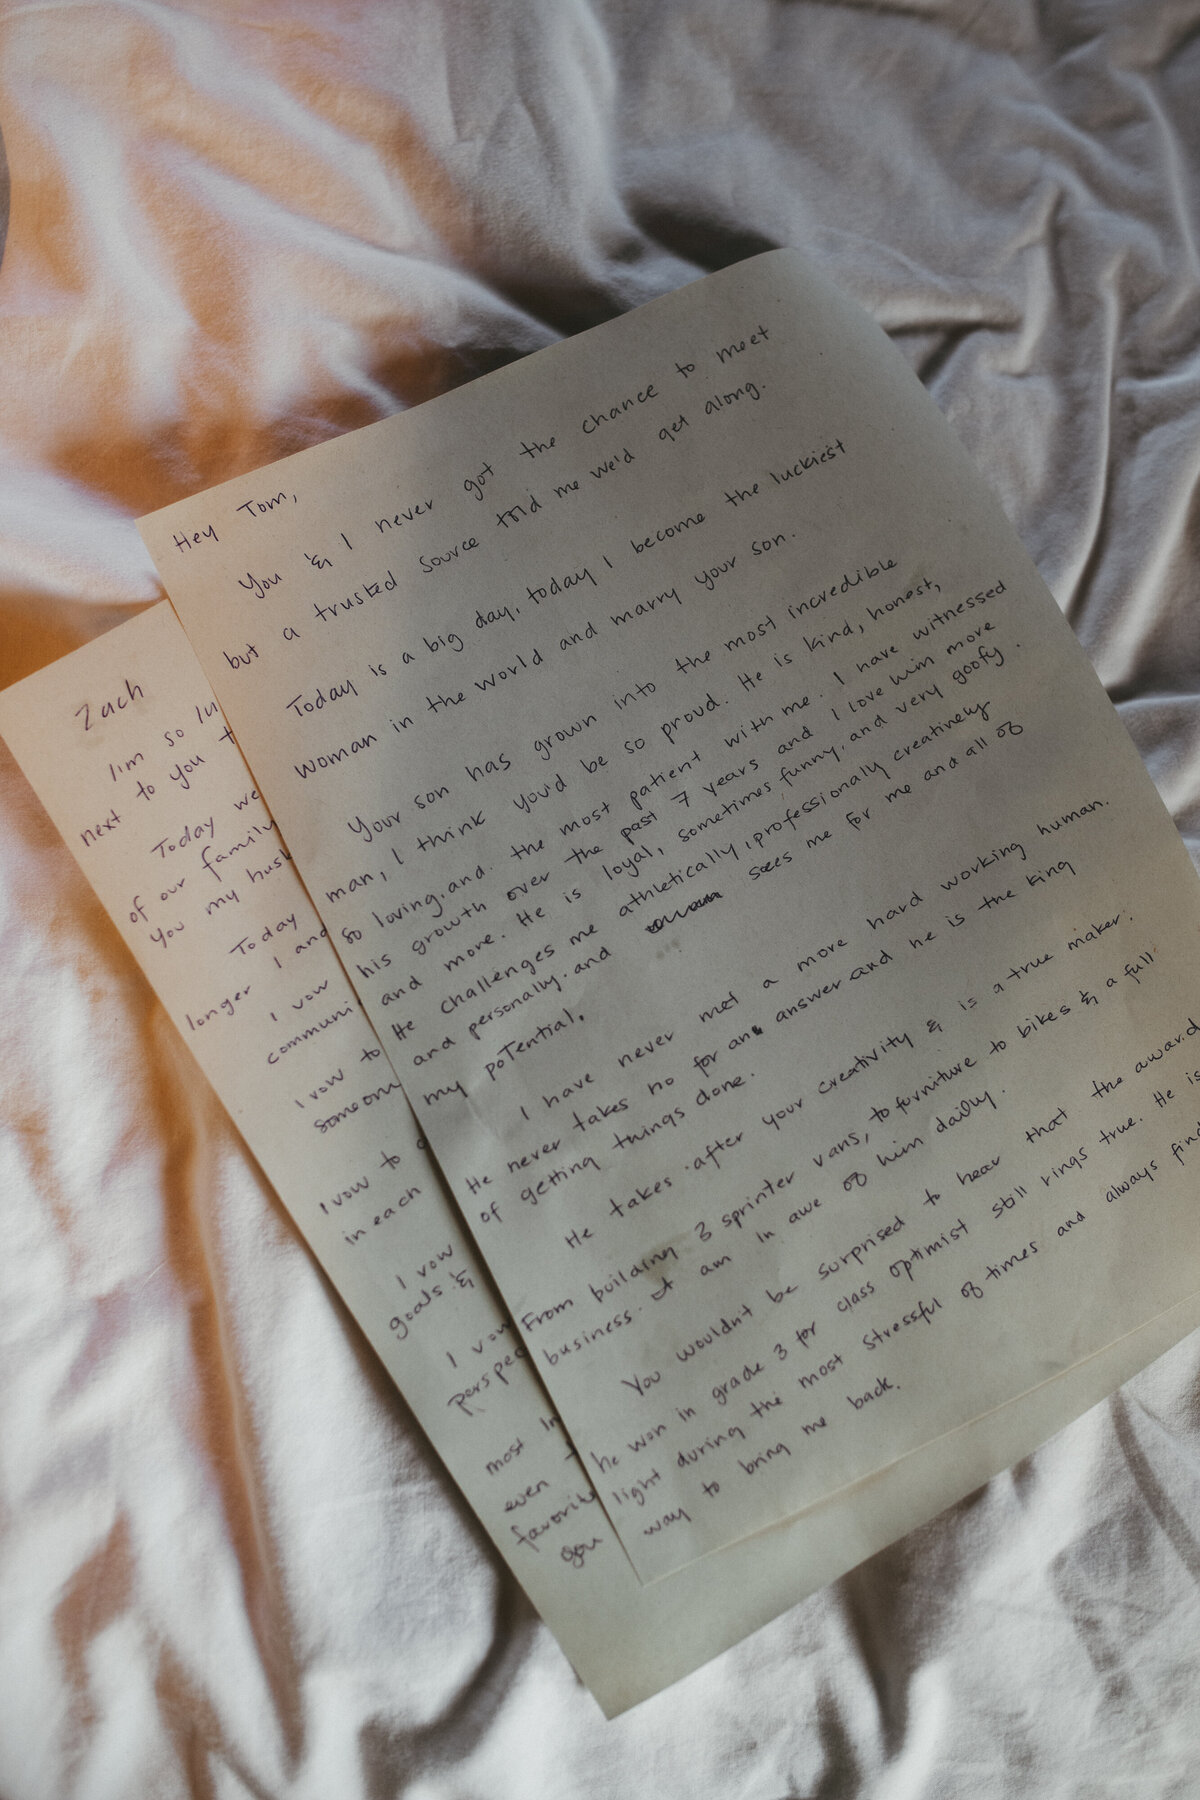 Hey Tom,
You & I never got the chance to meet
but a trusted source told me we'd get along.
Today is a big day, today I become the luckiest
woman in the world and marry your son.
Your son has grown into the most incredible
man, I think you'd be so proud. He is kind, honest,
so loving, and the most patient with me. I have witnessed
his growth over the past 7 years and I love him more
and more. He is loyal, sometimes funny, and very goofy.
He challenges me athletically, professionally creatively
and personally. and sees me for me and all of
my potential.
I have never met a more hard working human.
He never takes no for an answer and he is the king
of getting things done.
He takes after your creativity & is a true maker.
From building 3 sprinter vans, to furniture to bikes & a full
business. I am in awe of him daily.
You wouldn't be surprised to hear that the award
he won in grade 3 for class optimist still rings true. He is
light during the most stressful of times and always find
way to bring me back.
Zach
I'm so lu
next to you t
Today we
of our family
you my husb
Today
longer I and
I vow
communi
I vow to
someon
I vow to
in each
I vow
goals &
I vow
perspec
most in
even
favorite
you